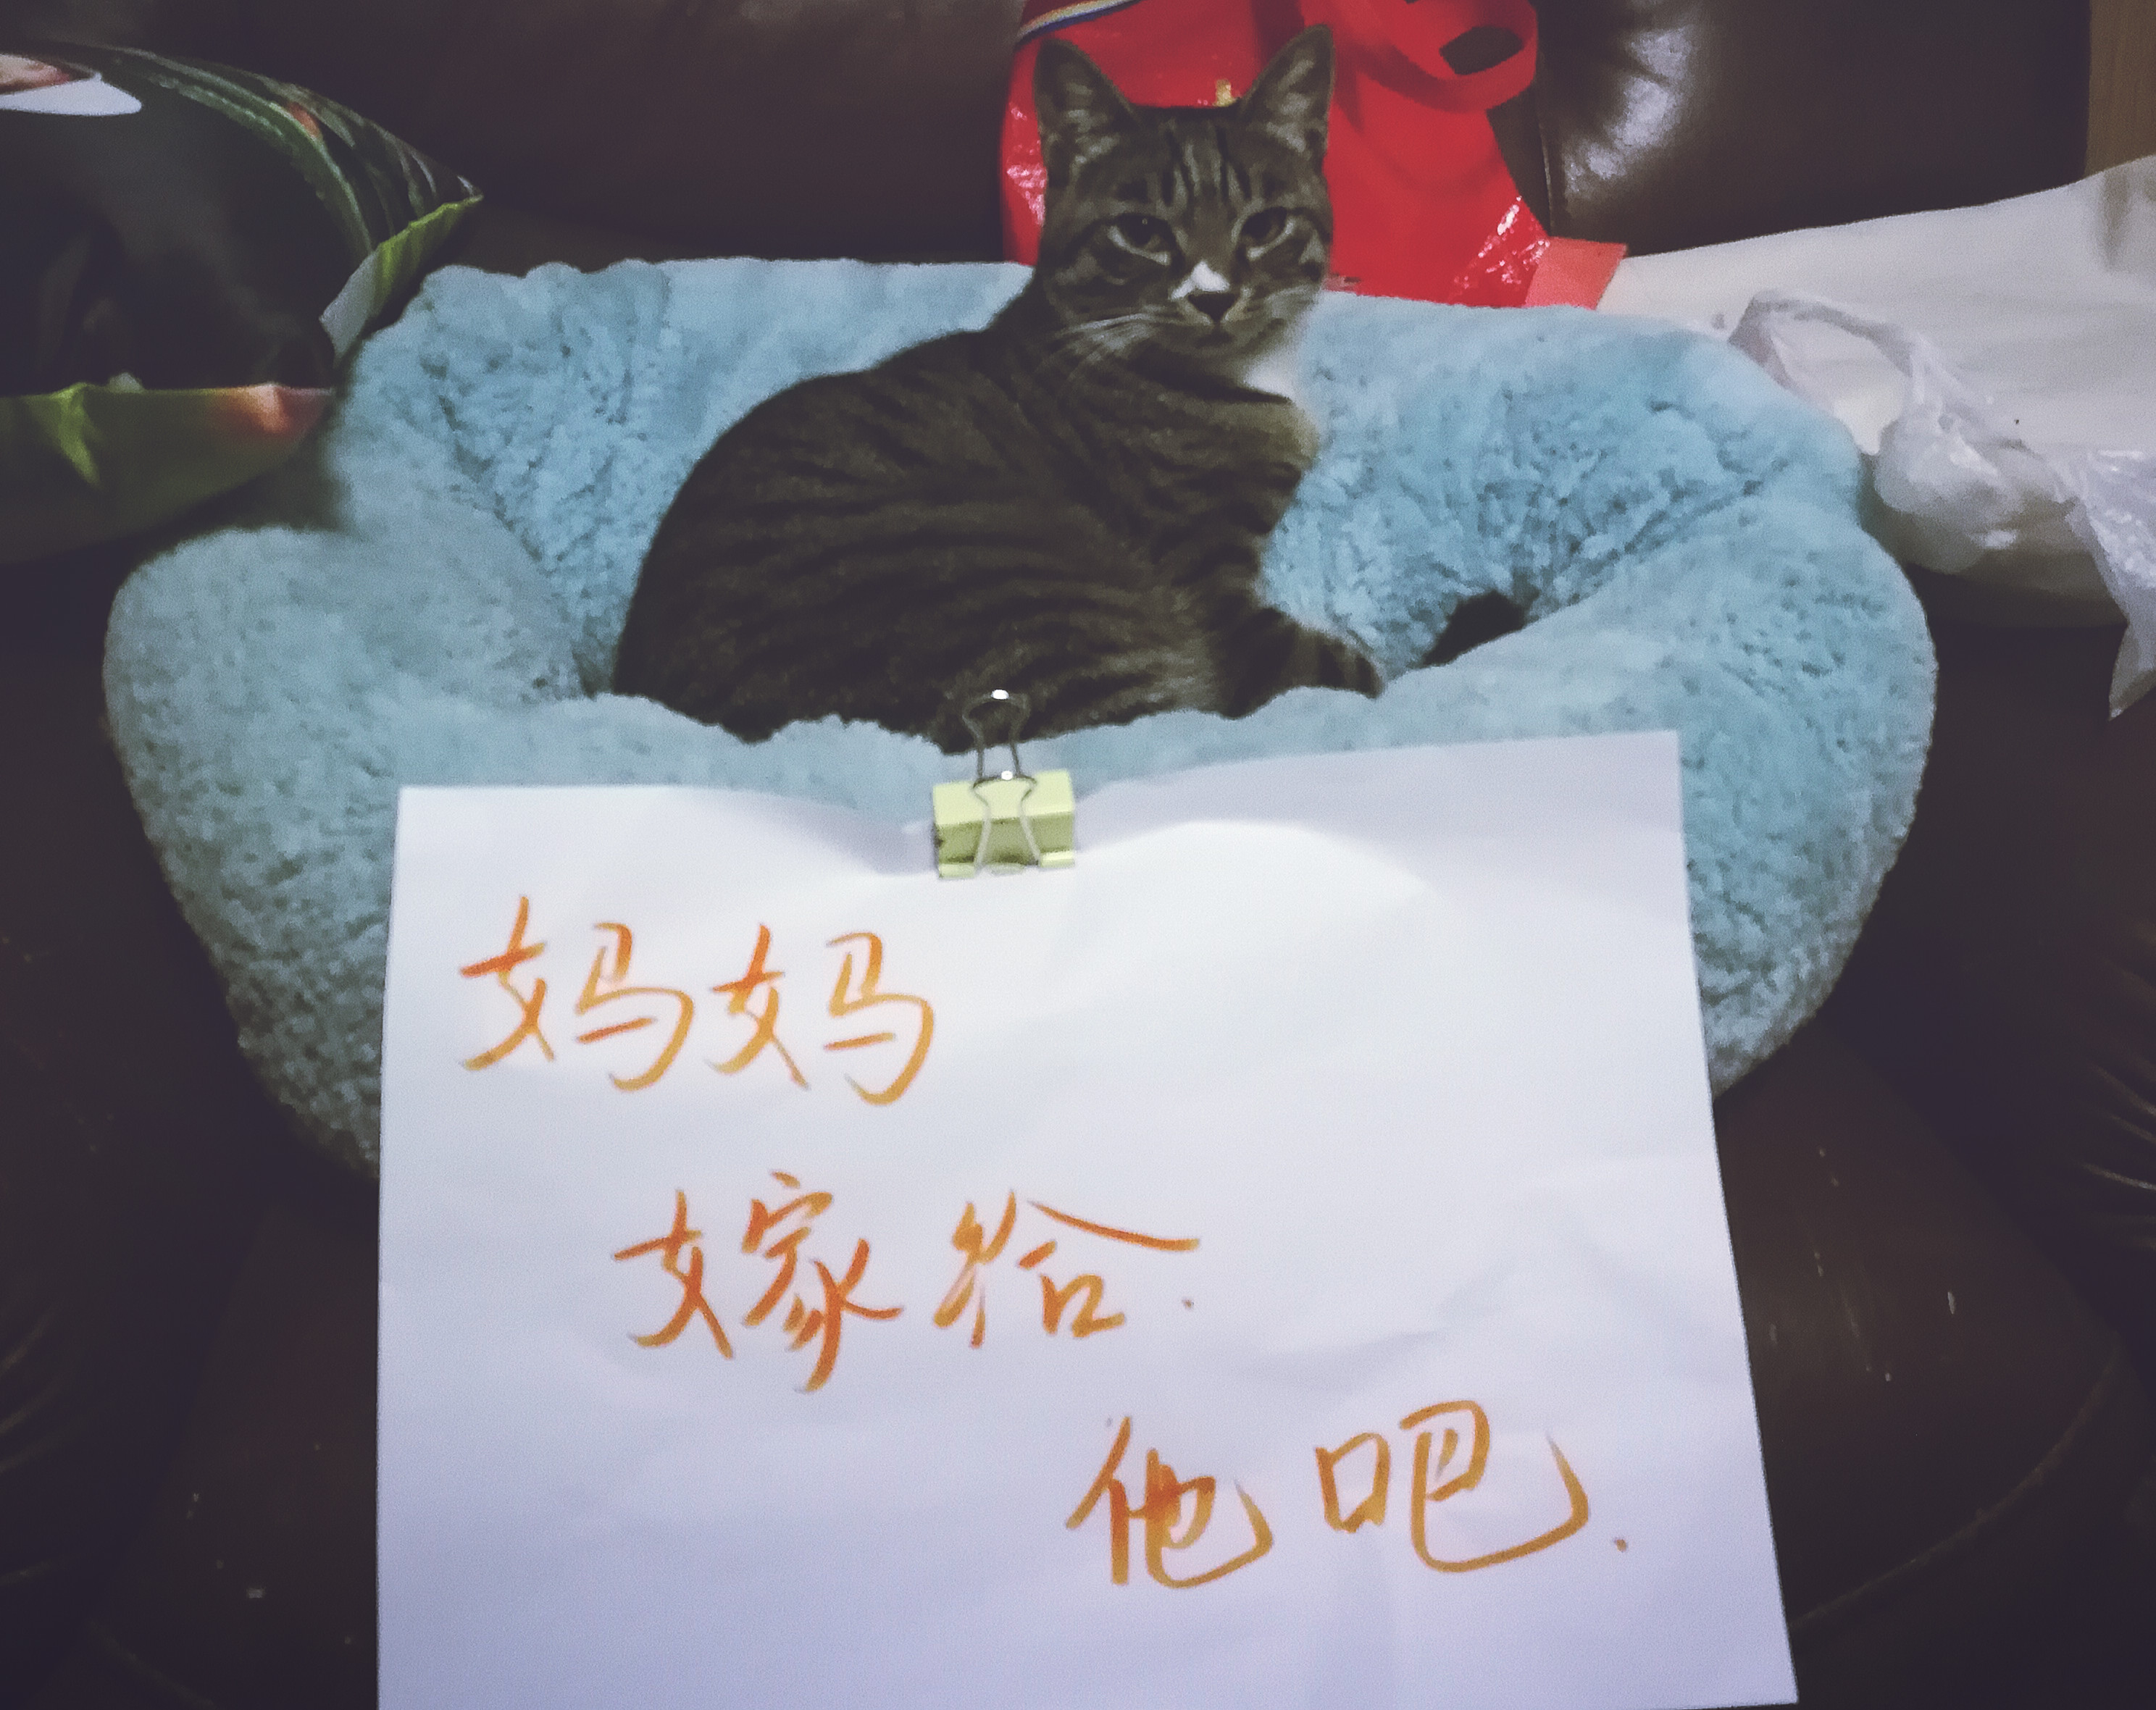 妈妈
嫁给
他吧.